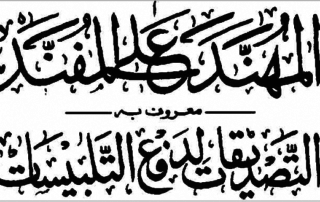 المُهَنَّد عَلَى المُفَنَّد
معروف به
التَّصْدِيقَات لِدَفْعِ التَّلْبِيسَات